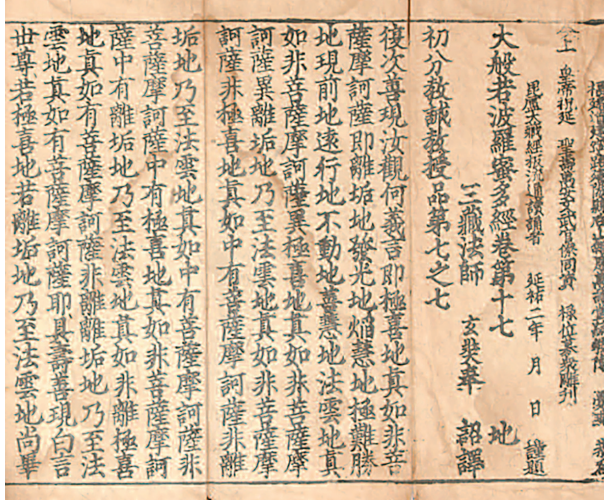 今上 皇帝祝延 聖壽萬安文武官僚同資 祿位募衆雕刊
毘盧大藏經板流通讀誦者 延祐二年 月 日 謹題
大般若波羅蜜多經卷第十七 地
三藏法師 玄奘奉 詔譯
初分教誡教授品第七之七
復次善現汝觀何義言即極喜地真如非菩
薩摩訶薩即離垢地發光地焰慧地極難勝
地現前地遠行地不動地善慧地法雲地真
如非菩薩摩訶薩異極喜地真如非菩薩摩
訶薩異離垢地乃至法雲地真如非菩薩摩
訶薩非極喜地真如中有菩薩摩訶薩非離
垢地乃至法雲地真如中有菩薩摩訶薩非
菩薩摩訶薩中有極喜地真如非菩薩摩訶
薩中有離垢地乃至法雲地真如非離極喜
地真如有菩薩摩訶薩非離離垢地乃至法
雲地真如有菩薩摩訶薩耶具壽善現白言
世尊若極喜地若離垢地乃至法雲地尚畢